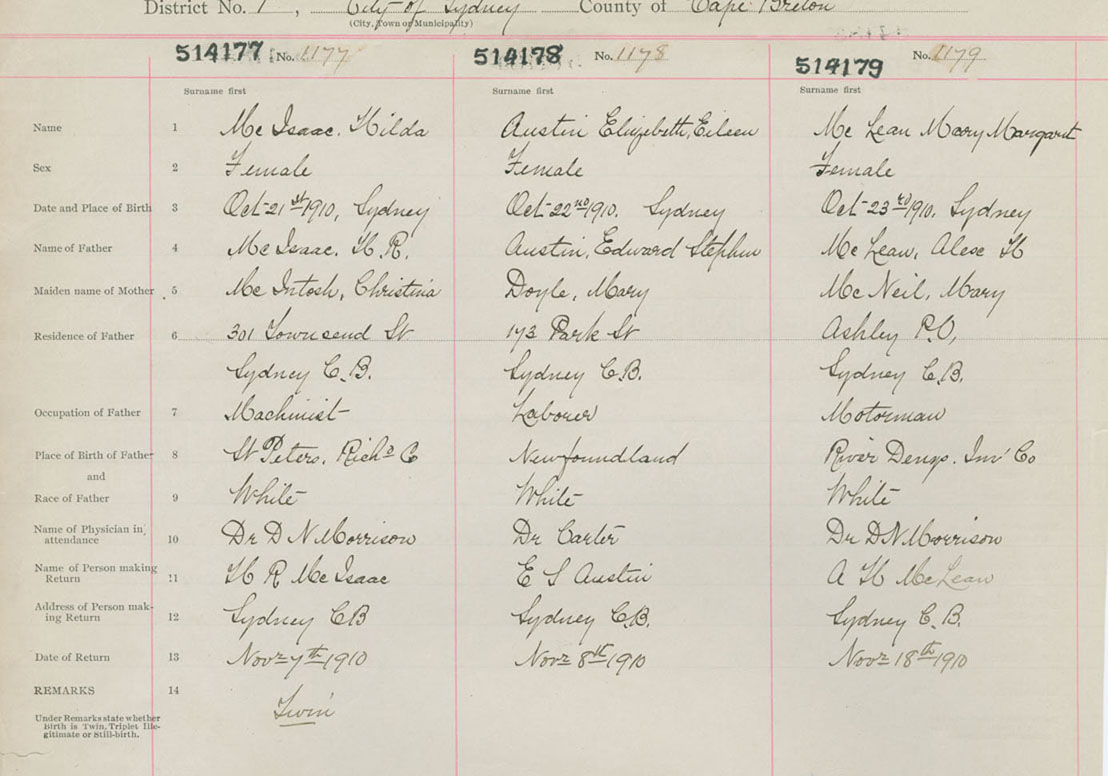 District No. 1, City of Sydney County of Cape Breton
(City, Town or Municipality)
514177 No. 1177 514178 No. 1178 514179 No. 1179
Surname first Surname first Surname first
Name 1 Mc Isaac. Hilda Austin Elizebeth, Eileen Mc Lean Mary Margaret
Sex 2 Female Female Female
Date and Place of Birth 3 Oct-21st 1910, Sydney Oct-22nd 1910. Sydney Oct-23rd 1910. Sydney
Name of Father 4 Mc Isaac. H. R. Austin, Edward Stephen Mc Lean, Alex H
Maiden name of Mother 5 Mc Intosh, Christina Doyle, Mary Mc Neil, Mary
Residence of Father 6 301 Townsend St 173 Park St Ashley P.O,
Sydney C.B. Sydney C.B. Sydney C.B.
Occupation of Father 7 Machinist Laborer Motorman
Place of Birth of Father 8 St Peters. Richd Co Newfoundland River Denys. Inv' Co
and
Race of Father 9 White White White
Name of Physician in
attendance 10 Dr D N Morrison Dr Carter Dr D N Morrison
Name of Person making
Return 11 H R Mc Isaac E S Austin A H McLean
Address of Person mak-
ing Return 12 Sydney CB Sydney C.B. Sydney C.B.
Date of Return 13 Novr 7th 1910 Novr 8th 1910 Novr 18th 1910
REMARKS 14 Twin
Under Remarks state whether
Birth is Twin, Triplet Ille-
gitimate or Still-birth.